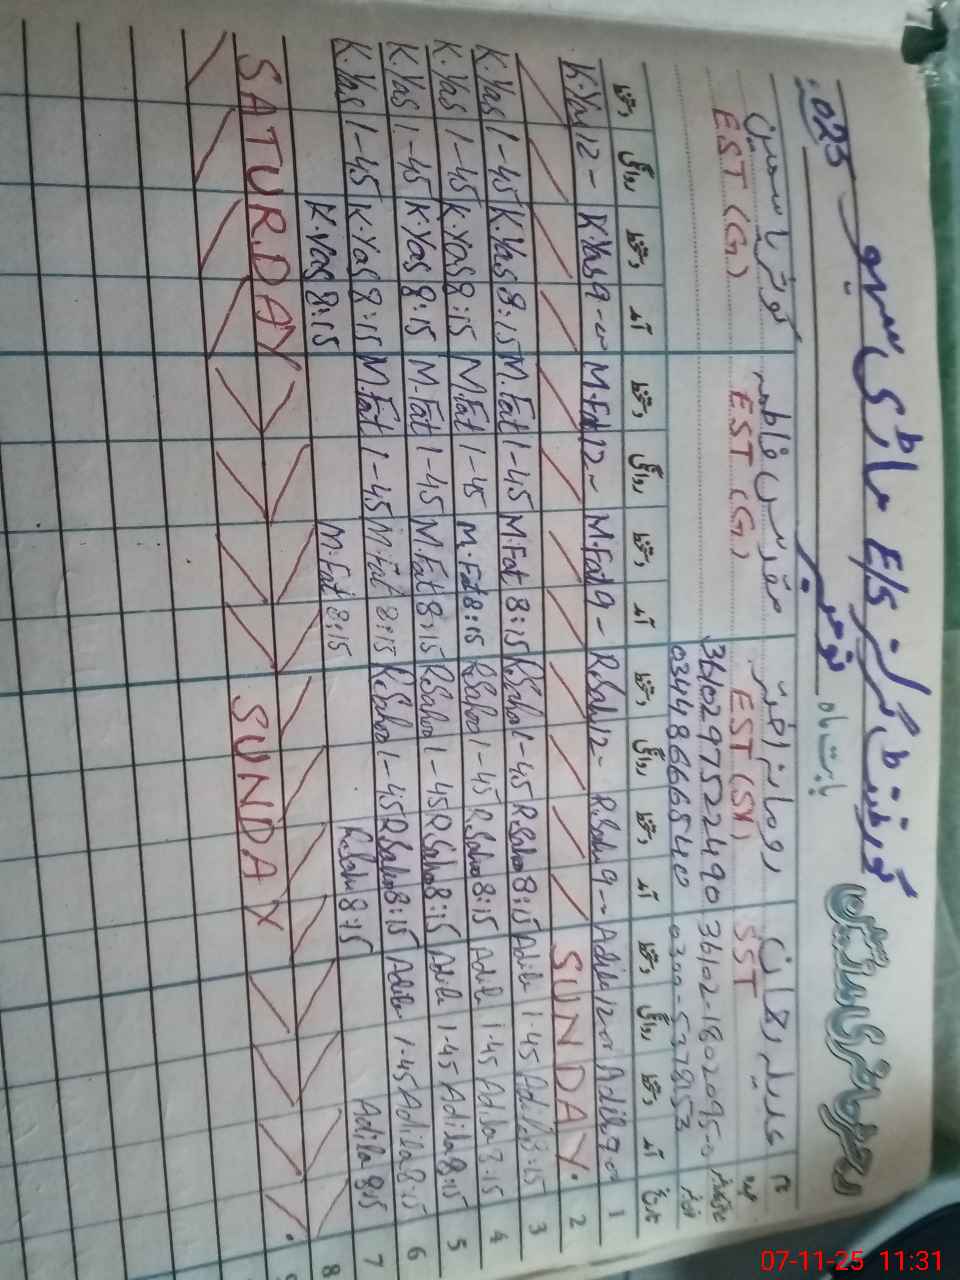 رجسٹر حاضری گورنمنٹ گرلز E/S ماڑی
بابت ماہ نومبر
نام عدیلہ رومانہ مقدس فاطمہ کوثر یاسمین
عہدہ SST EST EST (G) EST (G)
36102-1802095-0 3610297522490
0300-5378953 03448666540
تاریخ آمد دستخط روانگی دستخط آمد دستخط روانگی دستخط آمد دستخط روانگی دستخط آمد دستخط روانگی دستخط
1 Adila 9 Adila 12 R.Saho 9 R.Saho 12 M.Fat 9 M.Fat 12 K.Yas 9 K.Yas 12
2 SUNDAY.
3 Adila 8:15 Adila 1.45 R.Saho 8:15 R.Saho 1-45 M.Fat 8:15 M.Fat 1-45 K.Yas 8:15 K.Yas 1-45
4 Adila 8.15 Adila 1.45 R.Saho 8:15 R.Saho 1-45 M.Fat 8:15 M.Fat 1-45 K.Yas 8:15 K.Yas 1-45
5 Adila 8:15 Adila 1.45 R.Saho 8:15 R.Saho 1-45 M.Fat 8:15 M.Fat 1-45 K.Yas 8:15 K.Yas 1-45
6 Adila 8:15 Adila 1.45 R.Saho 8:15 R.Saho 1-45 M.Fat 8:15 M.Fat 1-45 K.Yas 8:15 K.Yas 1-45
7 Adila 8:15 R.Saho 8:15 M.Fat 8:15 K.Yas 8:15
8
SATURDAY SUNDAY
07-11-25 11:31